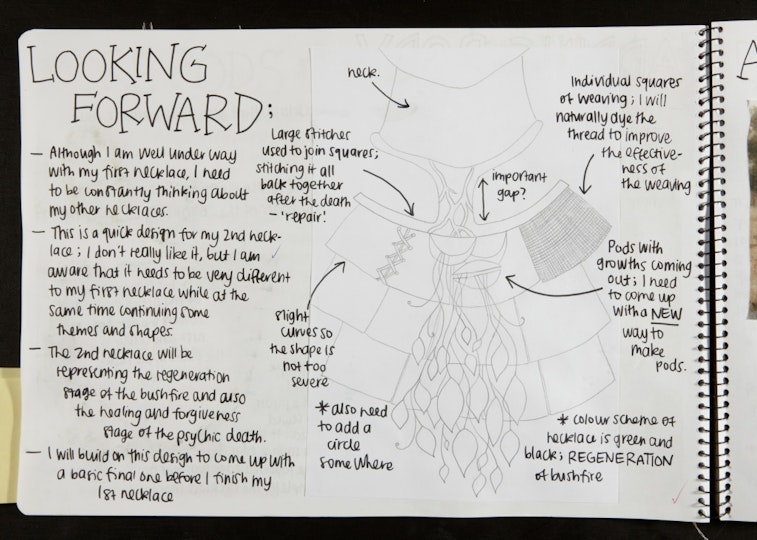 LOOKING
FORWARD;
– Although I am well under way
with my first necklace, I need
to be constantly thinking about
my other necklaces.
– This is a quick design for my 2nd neck-
lace; I don't really like it, but I am
aware that it needs to be very different
to my first necklace while at the
same time continuing some
themes and shapes.
– The 2nd necklace will be
representing the regeneration
stage of the bushfire and also
the healing and forgiveness
stage of the psychic death.
– I will build on this design to come up with
a basic final one before I finish my
1st necklace
neck.
Large stitches
used to join squares;
stitching it all
back together
after the death
– 'repair'
important
gap?
Individual squares
of weaving; I will
naturally dye the
thread to improve
the effective-
ness of
the weaving
Pods with
growths coming
out; I need
to come up
with a NEW
way to
make
pods.
slight
curves so
the shape is
not too
severe
* also need
to add a
circle
somewhere
* colour scheme of
necklace is green and
black; REGENERATION
of bushfire
A